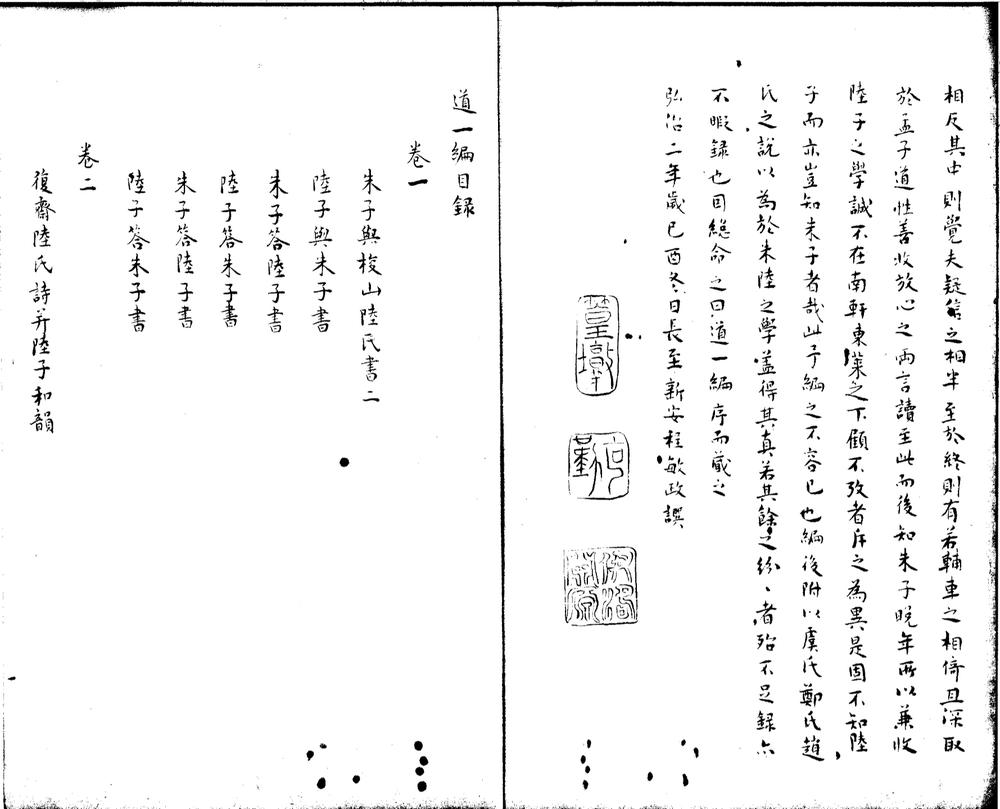 相反其中則覺夫疑信之相半至於終則有若輔車之相倚且深取
於孟子道性善收放心之兩言讀至此而後知朱子晚年所以兼收
陸子之學誠不在南軒東萊之下顧不攷者斥之為異是固不知陸
子而亦豈知朱子者哉此予編之不容已也編後附以虞氏鄭氏趙
氏之說以為於朱陸之學盖得其真若其餘之紛〻者殆不足錄亦
不暇録也因緫命之曰道一編序而蔵之
弘治二年歲已酉冬日長至新安程敏政譔
篁墩
道一編目録
卷一
朱子與梭山陸氏書二
陸子與朱子書
朱子答陸子書
陸子答朱子書
朱子答陸子書
陸子答朱子書
卷二
復齋陸氏詩并陸子和韻